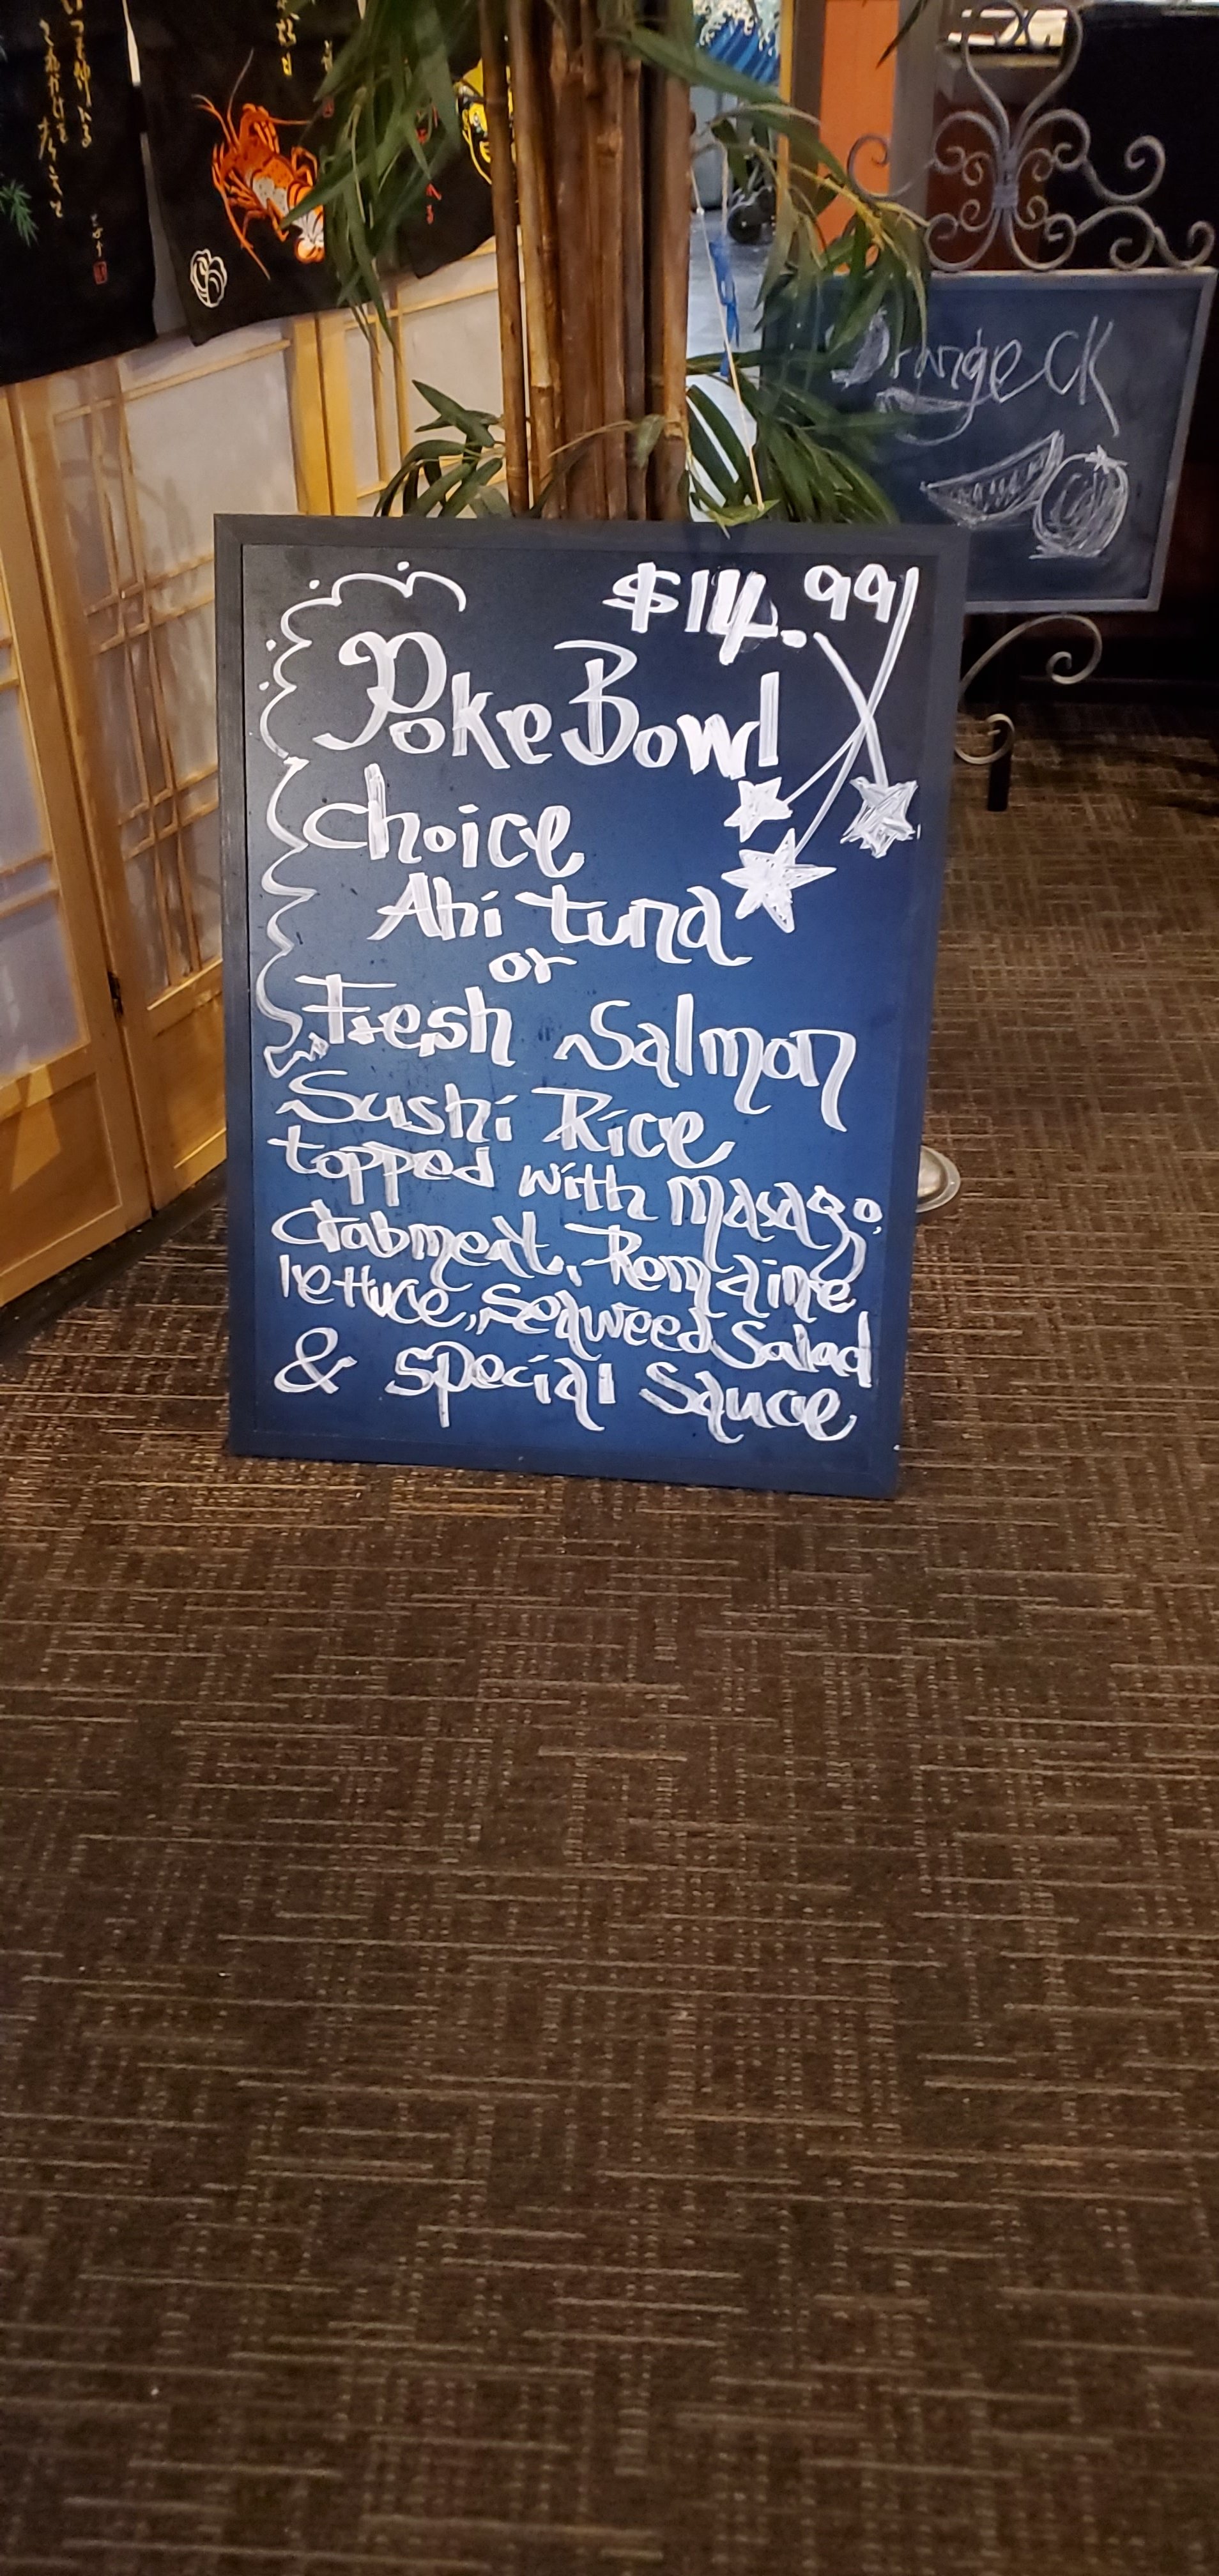 $14.99
Poke Bowl
Choice
Ahi tuna
or
Fresh Salmon
Sushi Rice
topped with Masago,
Crabmeat, Romaine
lettuce, Seaweed Salad
& special Sauce
Orange CK